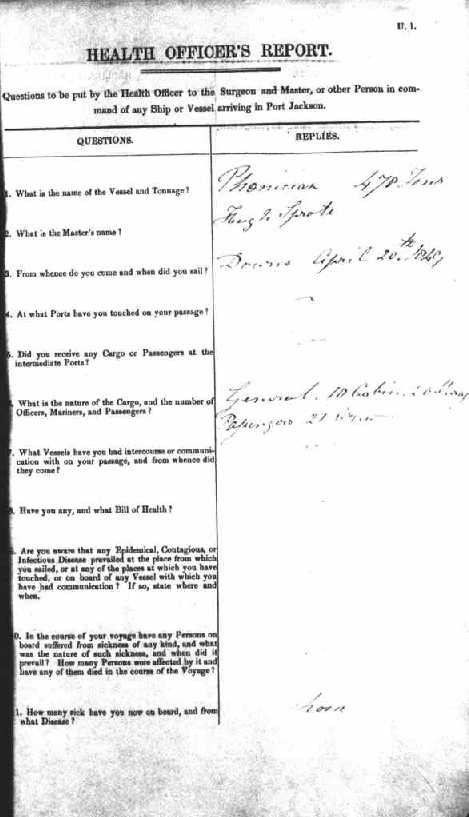 U. 1.
HEALTH OFFICER'S REPORT.
Questions to be put by the Health Officer to the Surgeon and Master, or other Person in com-
mand of any Ship or Vessel arriving in Port Jackson.
QUESTIONS. REPLIES.
1. What is the name of the Vessel and Tonnage? Phoenician 478 Tons
2. What is the Master's name? Hugh Sproat
3. From whence do you come and when did you sail? Downs April 20th 1849
4. At what Ports have you touched on your passage?
5. Did you receive any Cargo or Passengers at the
intermediate Ports?
6. What is the nature of the Cargo, and the number of General. 18 Cabin
Officers, Mariners, and Passengers? Passengers 21
7. What Vessels have you had intercourse or communi-
cation with on your passage, and from whence did
they come?
8. Have you any, and what Bill of Health?
9. Are you aware that any Epidemical, Contagious, or
Infectious Disease prevailed at the place from which
you sailed, or at any of the places at which you have
touched, or on board of any Vessel with which you
have had communication? If so, state where and
when.
10. In the course of your voyage have any Persons on
board suffered from sickness of any kind, and what
was the nature of such sickness, and when did it
prevail? How many Persons were affected by it and
have any of them died in the course of the Voyage?
11. How many sick have you now on board, and from
what Disease?